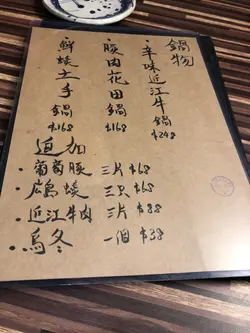 鍋物
辛味近江牛鍋 $248
豚肉花田鍋 $168
鮮蠔土手鍋 $168
追加
·葡萄豚 三片 $68
·蠔 三只 $68
·近江牛肉 三片 $88
·烏冬 一個 $38